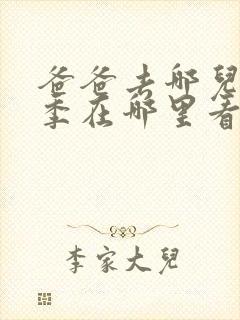 爸爸去哪兒
季在哪里看
李家大兒